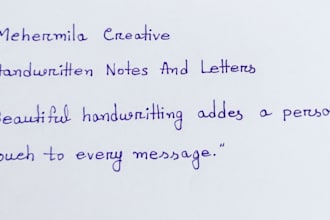 Mehermila Creative
Handwritten Notes And Letters
Beautiful handwritting addes a perso
ouch to every message."